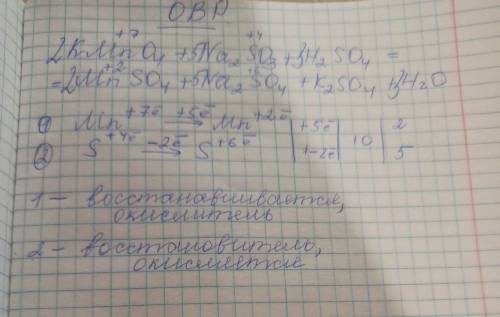 ОВР
2KMn⁺⁷O₄ + 5Na₂S⁺⁴O₃ + 3H₂SO₄ =
= 2Mn⁺²SO₄ + 5Na₂S⁺⁶O₄ + K₂SO₄ + 3H₂O
① Mn⁺⁷ᵉ̄ +5ē → Mn⁺²ᵉ̄ | +5ē | 10 | 2
② S⁺⁴ᵉ̄ −2ē → S⁺⁶ᵉ̄ | −2ē | | 5
1 – восстанавливается,
окислитель
2 – восстановитель,
окисляется